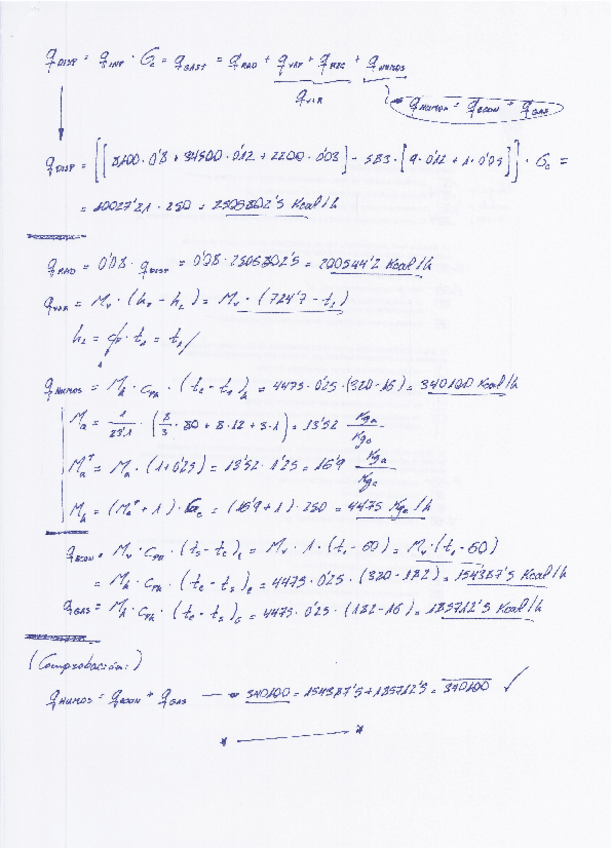 q DISP = q INF · Gc = q GAST = q RAD + q VAP + q REC + q HUMOS
q VIR
q HUMOS = q ECON + q GAS
q DISP = [[8100 · 0'8 + 34500 · 0'12 + 2200 · 0'03] - 583 · [9 · 0'12 + 1 · 0'05]] · Gc =
= 10027'21 · 250 = 2506802'5 Kcal/h
q RAD = 0'08 · q DISP = 0'08 · 2506802'5 = 200544'2 Kcal/h
= Mv · (hv - h1) = Mv · (724'7 - t1)
h1 = cp · t1 = t1
q HUMOS = Mh · cph · (te - ts)h = 4475 · 0'25 · (320 - 16) = 340100 Kcal/h
Ma = 1/23'1 · (8/3 · 80 + 8 · 12 + 3 · 1) = 13'52 Kga/Kgc
Ma* = Ma · (1 + 0'25) = 13'52 · 1'25 = 16'9 Kga/Kgc
Mh = (Ma* + 1) · Gc = (16'9 + 1) · 250 = 4475 /h
q ECON = Mv · cpa · (ts - te)e = Mv · 1 · (t1 - 60) = Mv · (t1 - 60)
= Mh · cph · (te - ts)e = 4475 · 0'25 · (320 - 182) = 154387'5 Kcal/h
q GAS = Mh · cph · (te - ts)G = 4475 · 0'25 · (182 - 16) = 185712'5 Kcal/h
(Comprobación:)
q HUMOS = q ECON + q GAS → 340100 = 154387'5 + 185712'5 = 340100 ✓